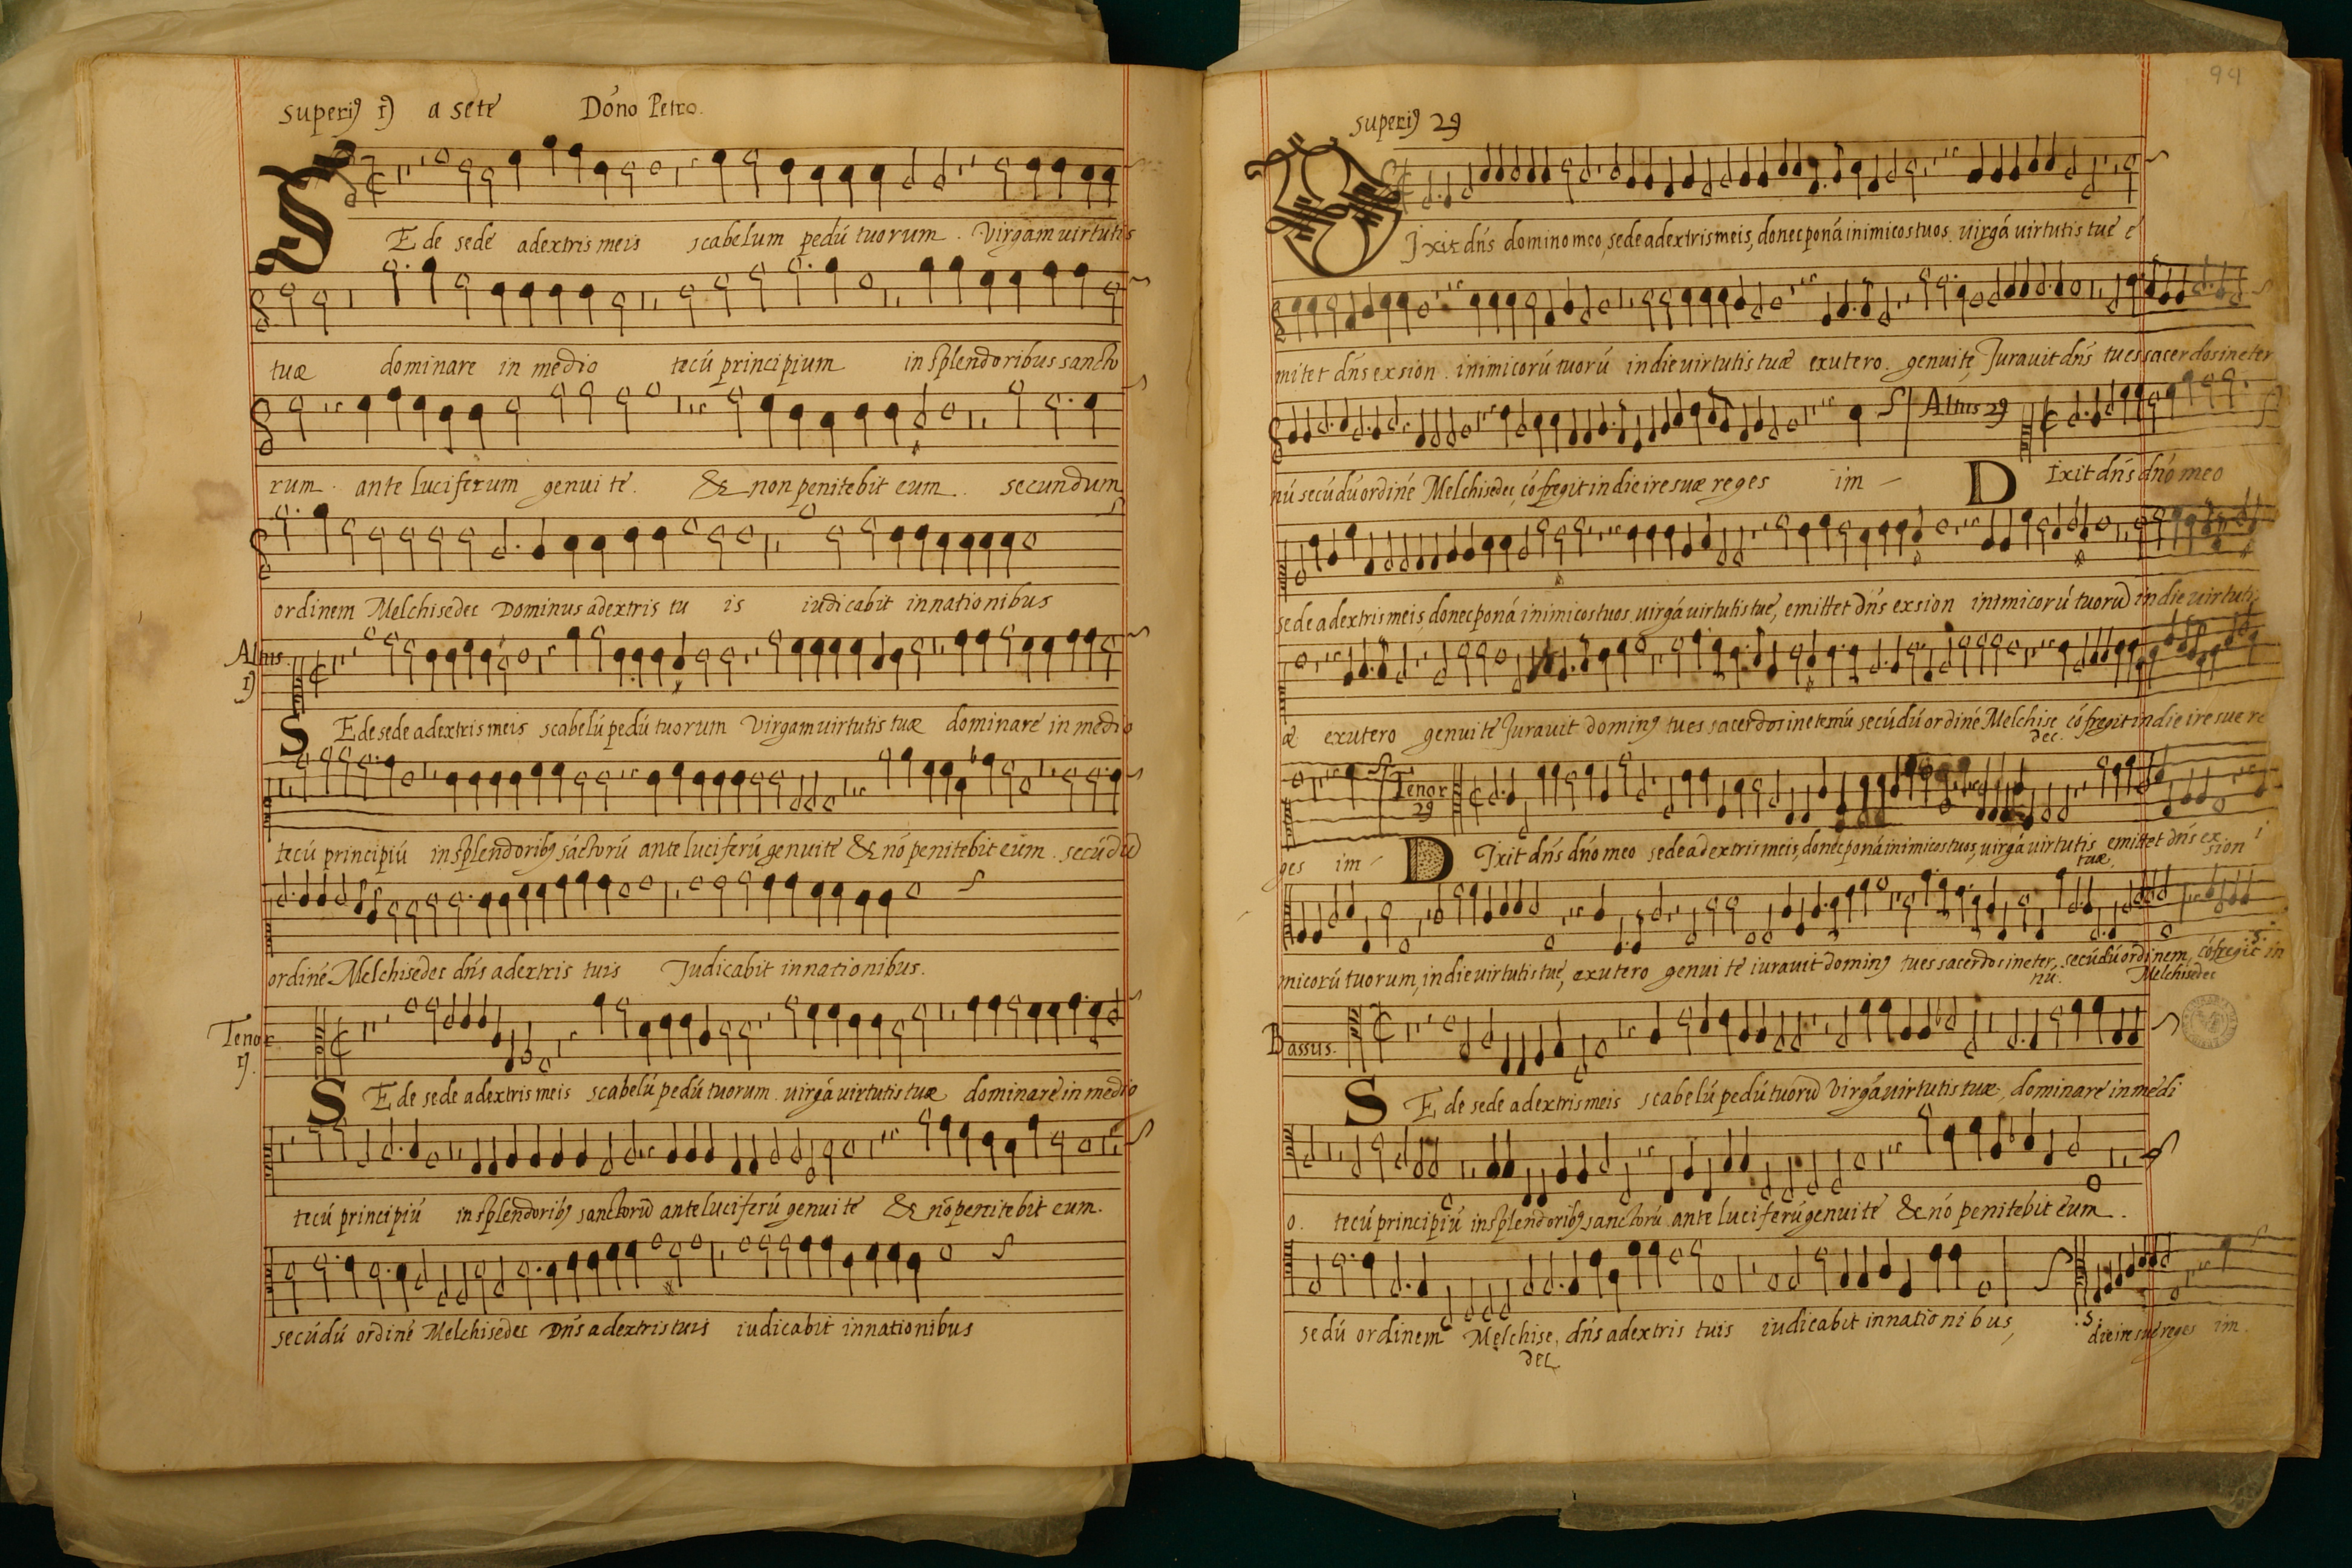 superiꝯ 1ꝯ a sete Dóno Petro.
S E de sede adextris meis scabelum pedú tuorum. Virgam uirtutis
tuæ dominare in medio tecú principium in splendoribus sancto
rum. ante luciferum genui te. & non penitebit eum. secundum
ordinem Melchisedec Dominus adextris tu is iudicabit in nationibus
Altus 1ꝯ
S E de sede adextris meis scabelú pedú tuorum Virgam uirtutis tuæ dominare in medio
tecú principiú in splendoribꝯ sáctorú ante luciferú genui te & nó penitebit eum. secúdú
ordiné Melchisedec dńs adextris tuis Iudicabit in nationibus.
Tenor 1ꝯ.
S E de sede adextris meis scabelú pedú tuorum. uirgá uirtutis tuæ dominare in medio
tecú principiú in splendoribꝯ sanctorú ante luciferú genui te & nó penitebit eum.
secúdú ordiné Melchisedec Dńs adextris tuis iudicabit in nationibus
94
superiꝯ 2ꝯ
D Ixit dńs domino meo, sede adextris meis, donec poná inimicos tuos. uirgá uirtutis tue e
mitet dńs ex sion. inimicorú tuorú in die uirtutis tuæ ex utero. genui te, Iurauit dńs tu es sacerdos in eter
nú secúdú ordiné Melchisedec, cófregit in die ire suæ reges im - Altus 2ꝯ D Ixit dńs dńo meo
sede adextris meis, donec poná inimicos tuos. uirgá uirtutis tue, emittet dńs ex sion inimicorú tuorú in die uirtutis
æ ex utero genui te Iurauit dominꝯ tu es sacerdos in eternú secúdú ordiné Melchisedec. cófregit in die ire sue re
ges im - Tenor 2ꝯ D Ixit dńs dńo meo sede adextris meis, donec poná inimicos tuos, uirgá uirtutis tuæ, emittet dńs ex sion i
micorú tuorum, in die uirtutis tue, ex utero genui te iurauit dominꝯ tu es sacerdos in eternú. secúdú ordinem Melchisedec, cófregit in
Bassus.
S E de sede adextris meis scabelú pedú tuorú Virgá uirtutis tuæ, dominare in medi
o. tecú principiú in splendoribꝯ sanctorú ante luciferú genui te & nó penitebit eum.
se dú ordinem Melchisedec, dńs adextris tuis iudicabit in nationibus, :S: die ire sue reges im